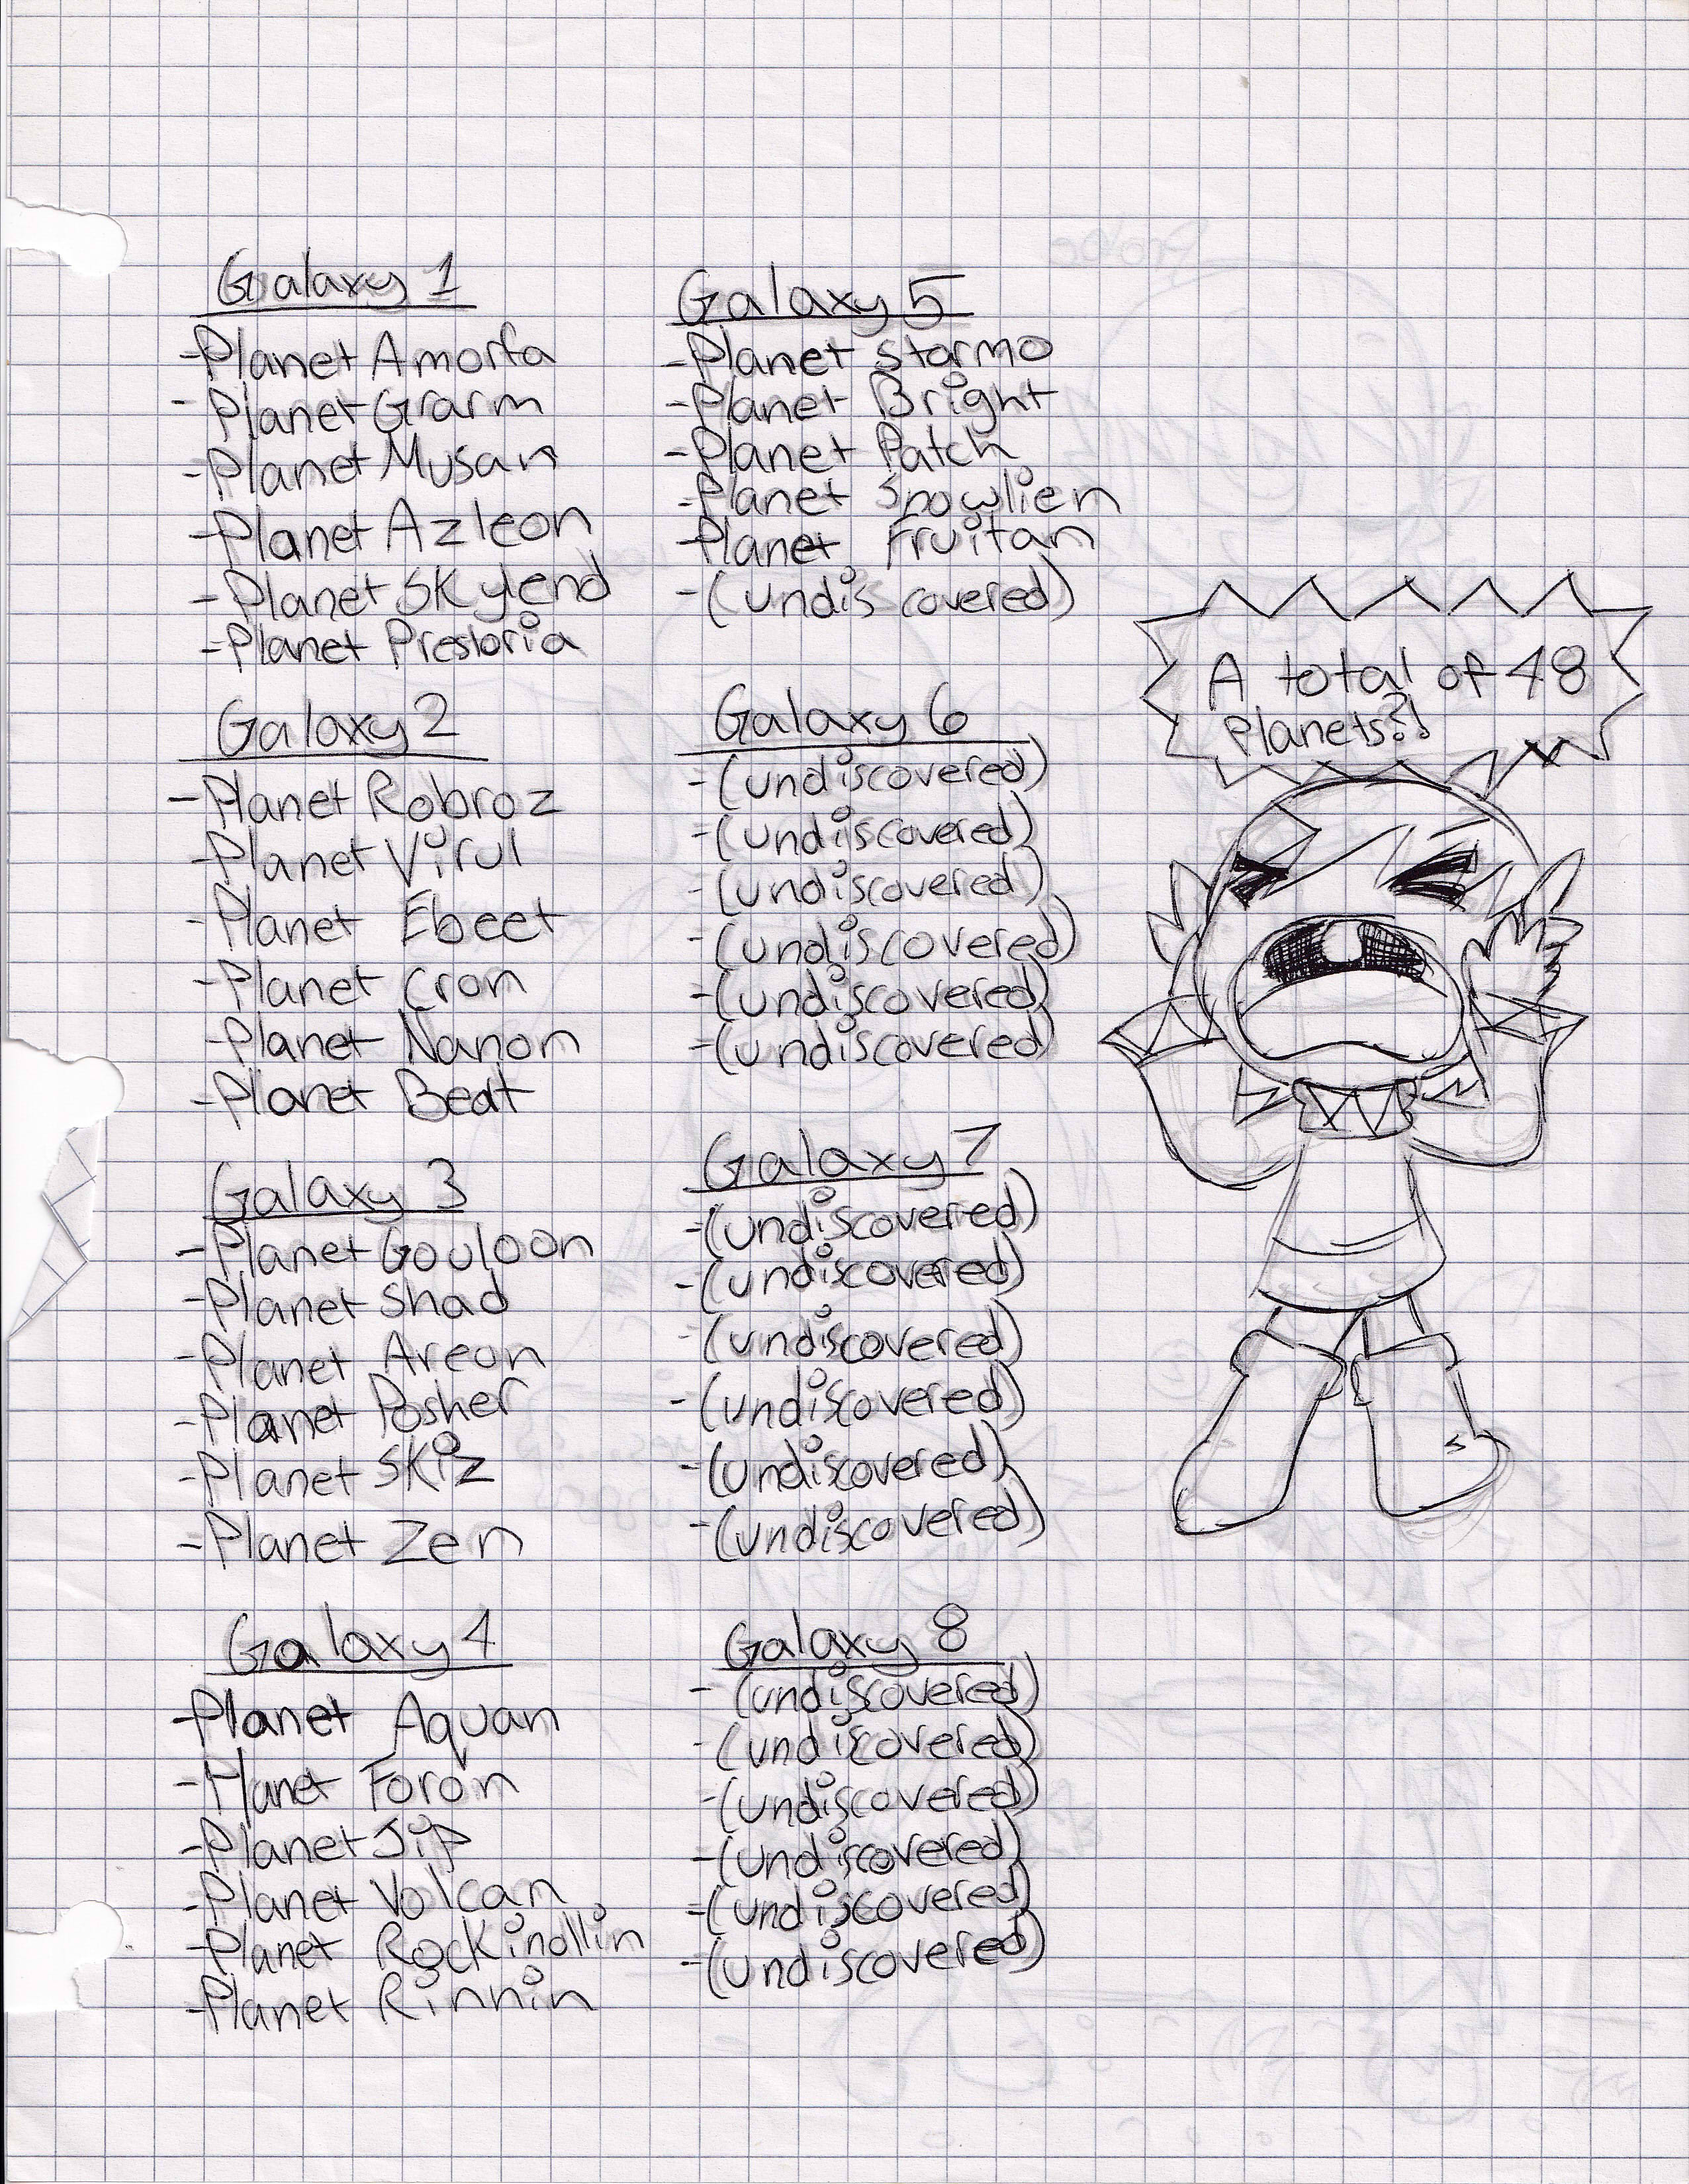 Galaxy 1
-Planet Amorfa
-Planet Grarm
-Planet Musan
-Planet Azleon
-Planet Skylend
-Planet Prestoria
Galaxy 2
-Planet Robroz
-Planet Virul
-Planet Ebeet
-Planet Cron
-Planet Nanon
-Planet Beat
Galaxy 3
-Planet Gouloon
-Planet Shad
-Planet Areon
-Planet Posher
-Planet Skiz
-Planet Zen
Galaxy 4
-Planet Aquan
-Planet Foron
-Planet Jip
-Planet Volcan
-Planet Rockinollin
-Planet Rinnin
Galaxy 5
-Planet Starmo
-Planet Bright
-Planet Patch
-Planet Snowlien
-Planet Fruitan
-(undiscovered)
Galaxy 6
-(undiscovered)
-(undiscovered)
-(undiscovered)
-(undiscovered)
-(undiscovered)
-(undiscovered)
Galaxy 7
-(undiscovered)
-(undiscovered)
-(undiscovered)
-(undiscovered)
-(undiscovered)
-(undiscovered)
Galaxy 8
-(undiscovered)
-(undiscovered)
-(undiscovered)
-(undiscovered)
-(undiscovered)
-(undiscovered)
A total of 48
Planets?!